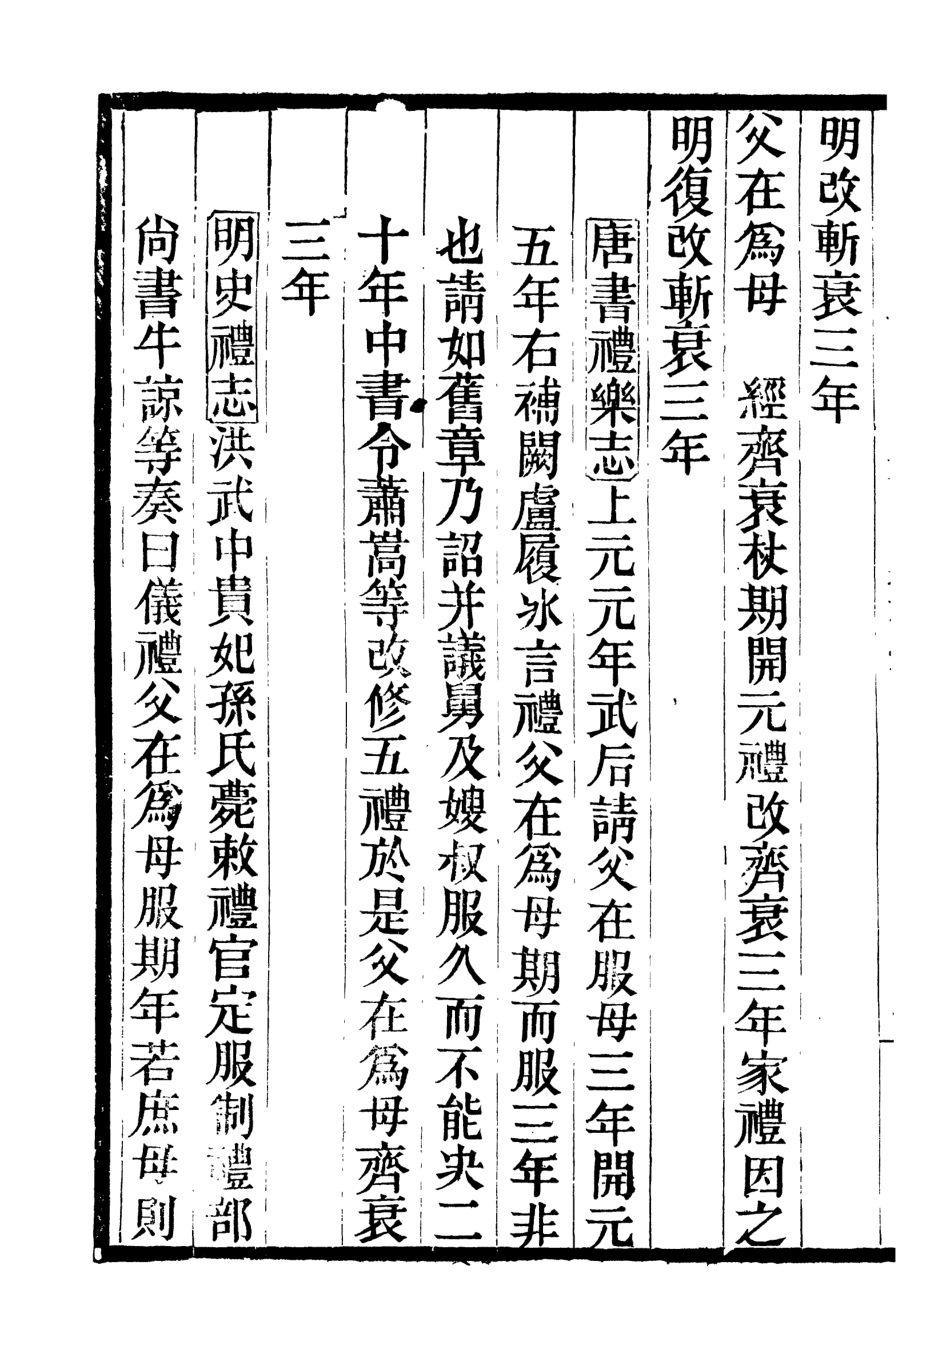 明改斬衰三年
父在爲母　經齊衰杖期開元禮改齊衰三年家禮因之
明復改斬衰三年
唐書禮樂志上元元年武后請父在服母三年開元
五年右補闕盧履冰言禮父在爲母期而服三年非
也請如舊章乃詔并議舅及嫂叔服久而不能決二
十年中書令蕭嵩等改修五禮於是父在爲母齊衰
三年
明史禮志洪武中貴妃孫氏薨敕禮官定服制禮部
尚書牛諒等奏曰儀禮父在爲母服期年若庶母則